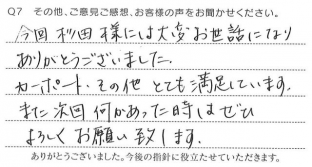 Q7 その他、ご意見ご感想、お客様の声をお聞かせください。
今回 杉田様には大変お世話になり
ありがとうございました。
カーポート、その他 とても満足しています。
また次回 何かあった時はぜひ
よろしくお願い致します。
ありがとうございました。今後の指針に役立たせていただきます。